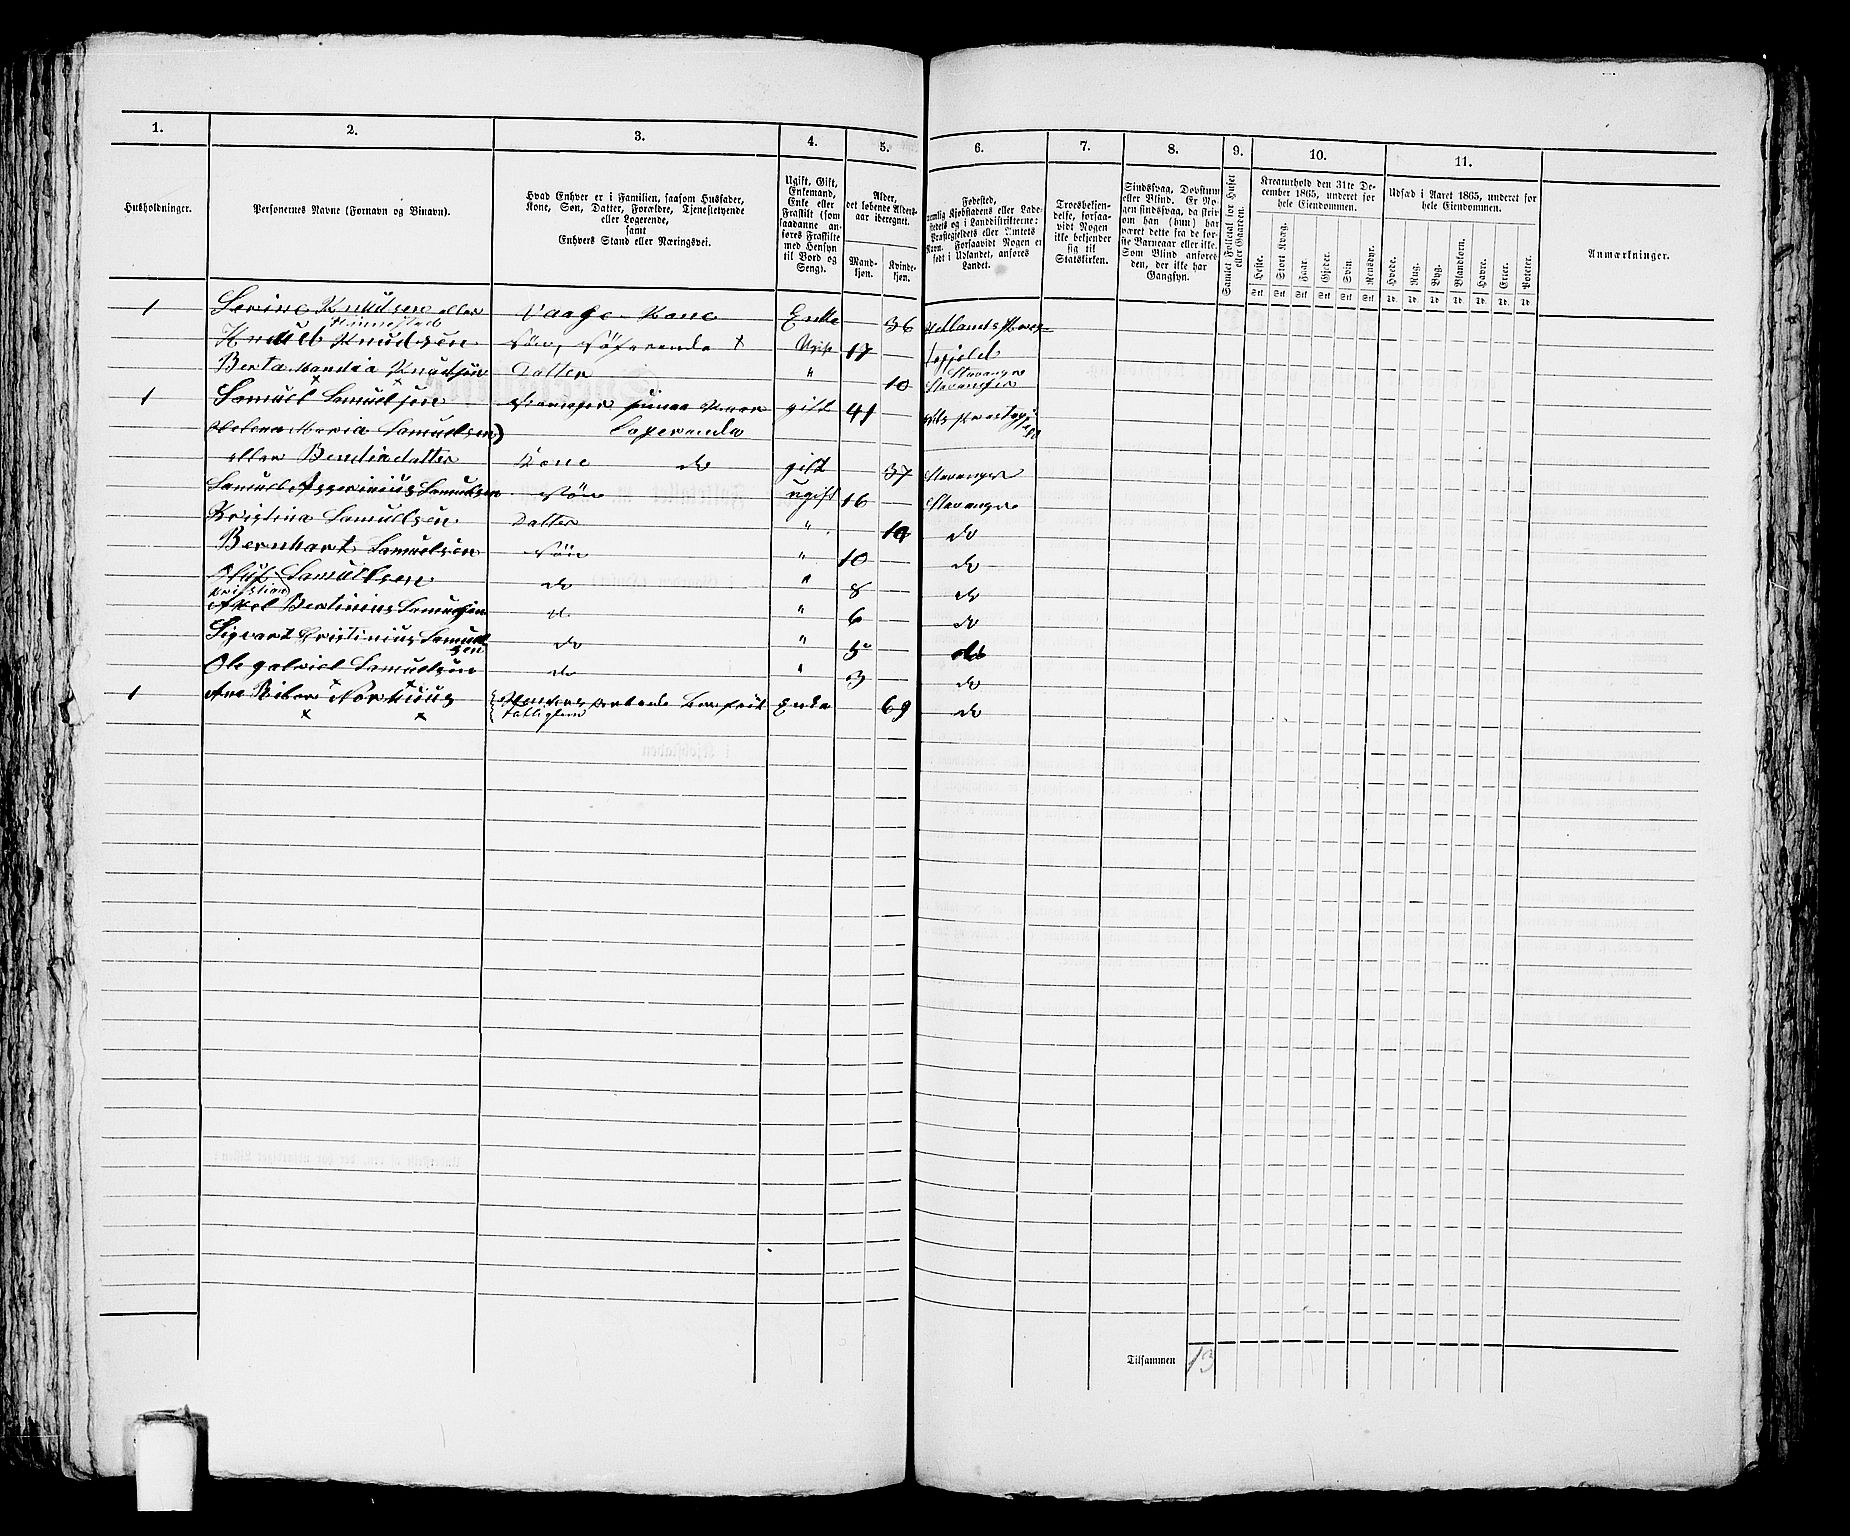 1. 2. 3. 4. 5. 6. 7. 8. 9. 10. 11.
Husholdninger.
Personernes Navne (Fornavn og Binavn).
Hvad Enhver er i Familien, saasom Husfader,
Kone, Søn, Datter, Forældre, Tjenestetyende
eller Logerende,
samt
Enhvers Stand eller Næringsvei.
Ugift, Gift,
Enkemand,
Enke eller
Fraskilt (som
saadanne an-
føres Fraskilte
med Hensyn
til Bord og
Seng).
Alder,
det løbende Alders-
aar iberegnet.
Mand-
kjøn.
Kvinde-
kjøn.
Fødested,
nemlig Kjøbstadens eller Lade-
stedets og i Landdistrikterne:
Præstegjeldets eller Amtets
Navn. Forsaavidt Nogen er
født i Udlandet, anføres
Landet.
Troesbekjen-
delse, forsaa-
vidt Nogen
ikke bekjender
sig til
Statskirken.
Sindssvag, Døvstum
eller Blind. Er No-
gen sindssvag, da skriv
om han (hun) har
været dette fra de for-
ste Barneaar eller ikke.
Som Blind anføres
den, der ikke har
Gangsyn.
Samlet Folketal for Huset
eller Gaarden.
Kreaturhold den 31te De-
cember 1865, underet for
hele Eiendommen.
Heste. Stort Kvæg. Faar. Gjeder. Svin. Rensdyr.
Udsæd i Aaret 1865, underet for
hele Eiendommen.
Hvede. Rug. Byg. Blandkorn. Havre. Erter. Poteter.
Anmærkninger.
1 Serine Knudsen eller Vaage Kone Enke 36
Knud Knudsen Søn, Ugift 17
Berta Knudsen Datter " 10 Stavanger
1 Samuel Samuelsen gift 41
Helene Maria Samuelsen)
eller Bendixdatter Kone do gift 37 Stavanger
Samuel Samuelsen Søn ugift 16 Stavanger
Kristina Samuelsen Datter " do
Bernhart Samuelsen Søn " 10 do
Oluf Samuelsen do " 8 do
Kristian
Axel Bertinius Samuelsen do " 6 do
Sigvart Cristinius Samuel
sen do " 5 do
Ole gabriel Samuelsen do " 3 do
1 Enke 69 do
Tilsammen 13